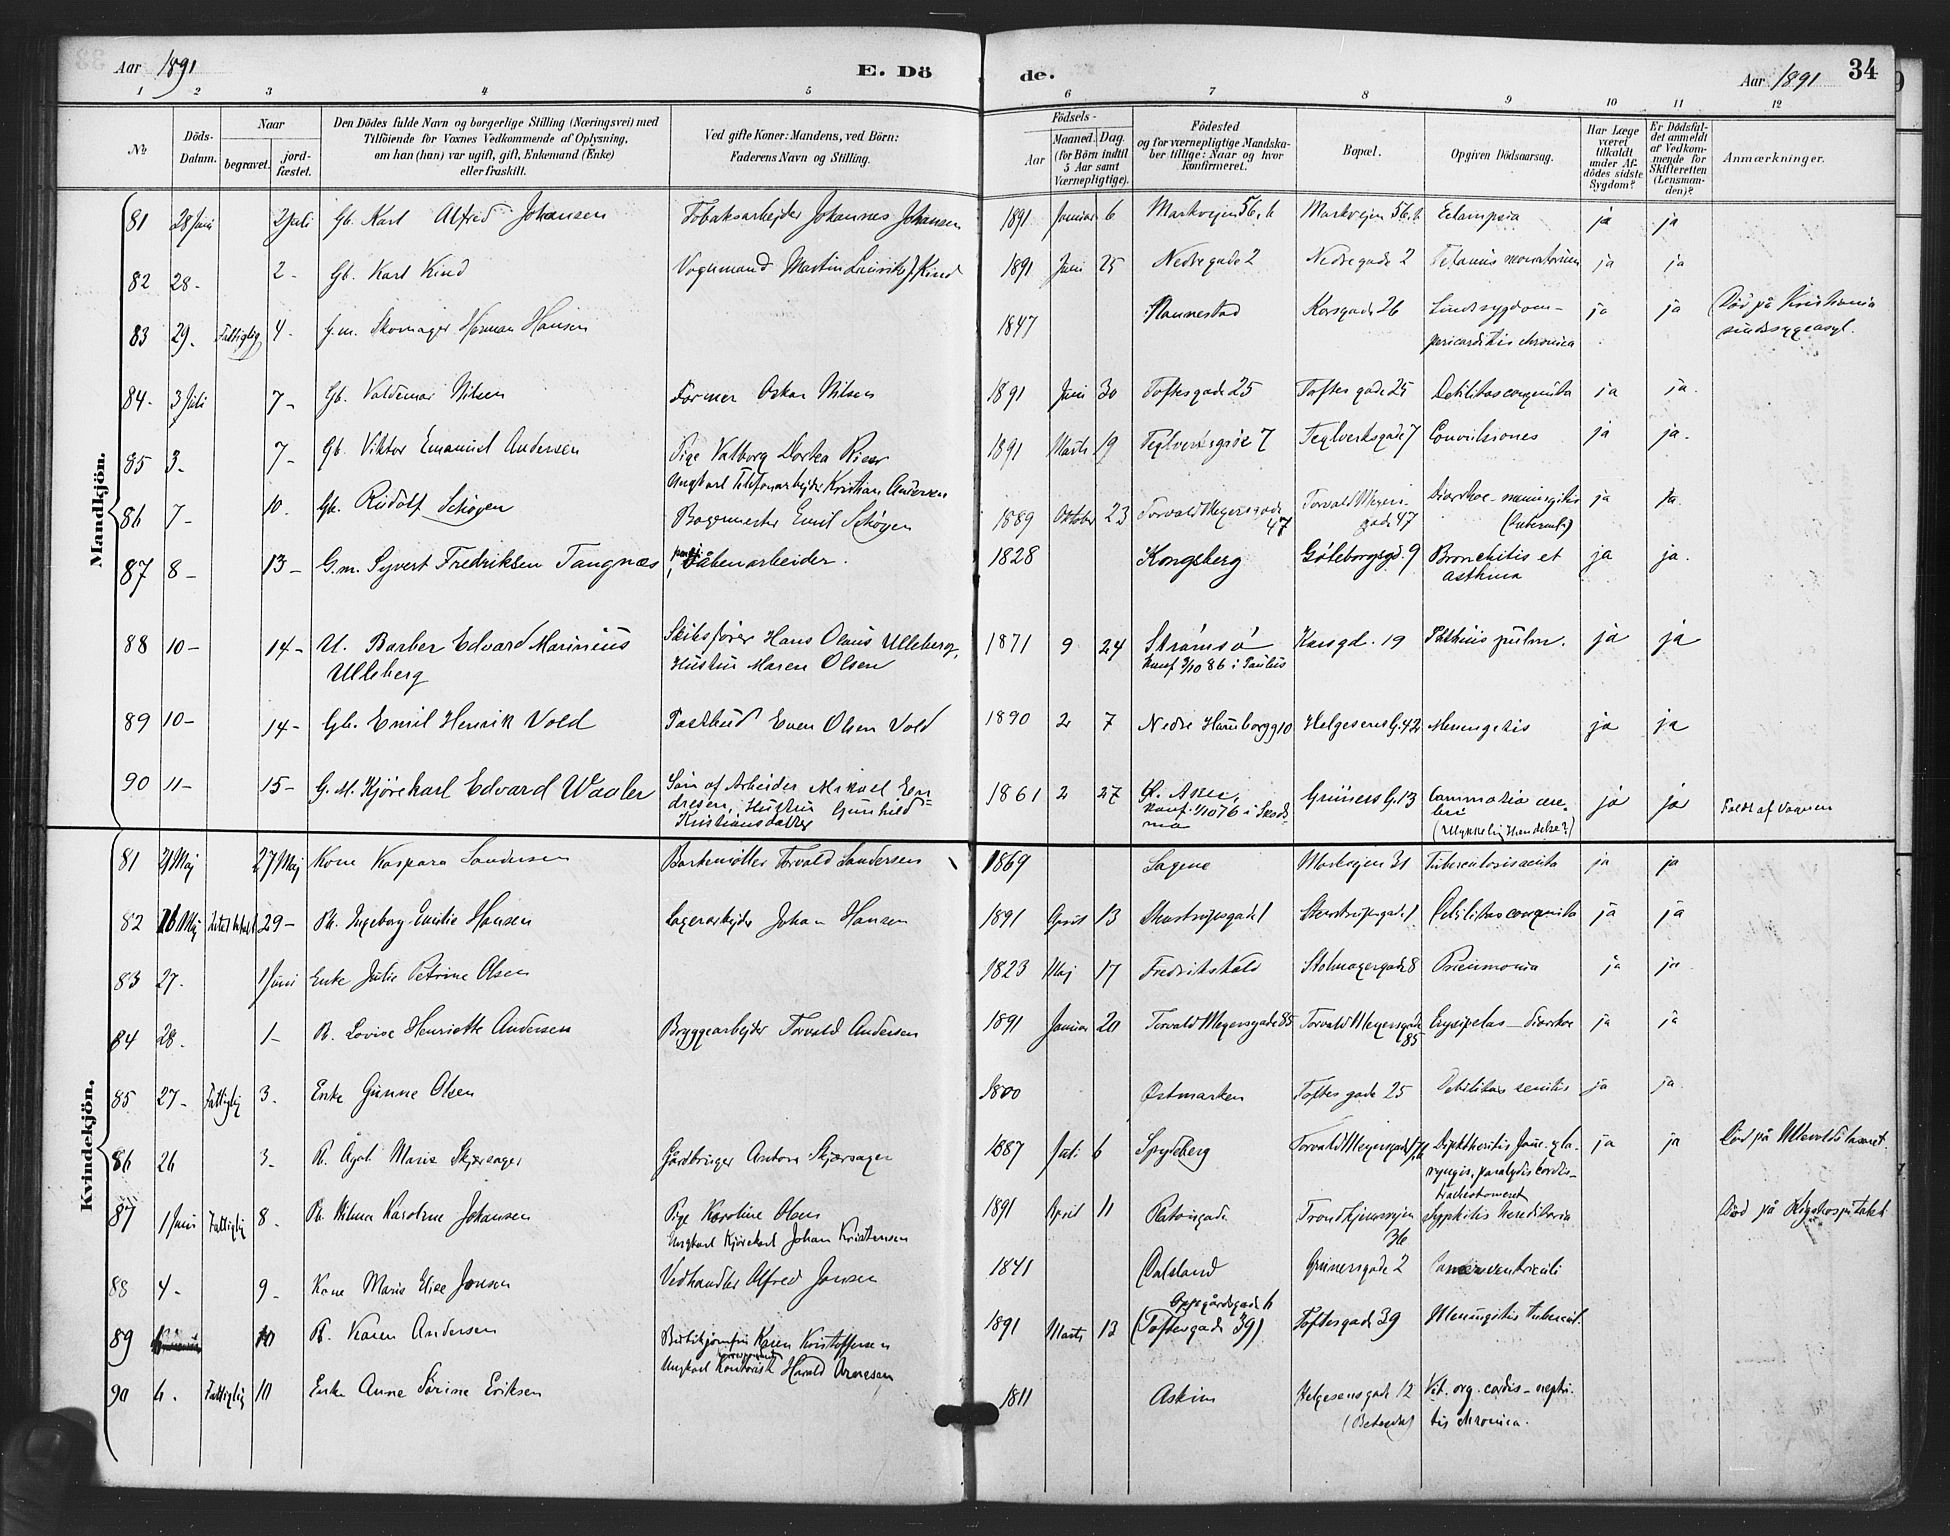 Aar 1891 E. Döde. Aar 1891 34
1 2 3 4 5 6 7 8 9 10 11 12
№ Döds-Datum. Naar begravet. jord-fæstet. Den Dödes fulde Navn og borgerlige Stilling (Næringsvei) med Tilföiende for Voxnes Vedkommende af Oplysning, om han (hun) var ugift, gift, Enkemand (Enke) eller fraskilt. Ved gifte Koner: Mandens, ved Börn: Faderens Navn og Stilling. Födsels- Aar Maaned. Dag. (for Börn indtil 5 Aar samt Værnepligtige). Födested og for værnepligtige Mandskaber tillige: Naar og hvor konfirmeret. Bopæl. Opgiven Dödsaarsag. Har Læge været tilkaldt under Afdödes sidste Sygdom? Er Dödsfaldet anmeldt af Vedkommende for Skifteretten (Lensmanden)? Anmærkninger.
Mandkjön.
81 28 Juni 2 Juli Gb. Karl Alfred Johansen Tobaksarbejder Johannes Johansen 1891 Januar 6 Markvejen 56, b Markvejen 56, b Eclampsia ja ja
82 28- 2- Gb. Karl Kind Vognmand Martin Lauritz J. Kind 1891 Juni 25 Nedregade 2 Nedregade 2 Tetanus ja ja
83 29- Fattiglig 4- G.m. Skomager Herman Hansen 1847 Korsgade 26 Sindssygdom- ja ja Död på Kristiania
pericarditis chronica sindssygeasyl.
84- 3 Juli 7- Gb. Valdemar Nilsen Former Oskar Nilsen 1891 Juni 30 Toftesgade 25 Toftes gade 25 Debilitas congenita ja ja
85 3- 7- Gb. Viktor Emanuel Andersen Pige Valborg Dortea Rieer 1891 Marts 19 Teglverksgade 7 Teglverksgade 7 Convulsiones ja ja-
Ungkarl Telefonarbejder Kristian Andersen
86 7- 10- Gb. Rudolf Schøyen Bagermester Emil Schøyen 1889 Oktober 23 Torvald Meyersgade 47 Torvald Meyers gade 47 Diarrhoe- meningitis ja ja
87 8- 13- G.m. Syvert Fredriksen Tangnæs Våbenarbeider. 1828 Kongsberg Göteborgsgd. 9 Bronchitis et ja ja.
asthma
88 10- 14- U. Barber Edvard Marinius Skibsfører Hans Olaus Ulleberg, 1871 9 24 Strømsø Korsgd. 19 Phthisis pulm. ja ja
Ulleberg Hustru Maren Olsen Konf. 3/10 86 i Paulus
89 10- 14- Gb. Emil Henrik Vold Postbud Even Olsen Vold 1890 2 7 Nedre Hausborgg 10 Helgesens G. 42 Meningitis ja ja
90 11- 15- G. M. Kjørekarl Edvard Waaler Søn af Arbeider Mikael En- 1861 2 27 Gl. Aker, Grüners G. 13 Commotio cere- ja ja Faldt af Vognen
dresen, Hustru Gunhild bri
Kristiansdatter (Ulykkelig Hændelse?)
Kvindekjön.
81 21 Maj 27 Maj Kone Kaspara Sandersen Torvald Sandersen 1869 Sagene Markvejen 31 Tuberculosis acuta ja ja
82 16 Maj 29- Pb. Ingeborg Emilie Hansen Lagerarbejder Johan Hansen 1891 April 13 Stenstrupsgade 1 Stenstrupsgade 1 Debilitas congenita ja ja
83 27. 1 Juni Enke Julie Petrine Olsen 1823 Maj 17 Fredrikshald Stolmagergade 8 Pneumonia ja ja
84 28. 1- P. Lovise Henriette Andersen Bryggearbejder Torvald Andersen 1891 Januar 20 Torvald Meyersgade 85 Torvald Meyersgade 85 Erysipelas- diarrhoe ja ja
85 27- Fattiglig 3. Enke Gunne Olsen 1800 Østmarken Toftes gade 25 Debilitas senilis ja ja
86 26 3- P. Ågot Marie Skjærsager Gårdbruger Anton Skjærsager 1887 Juli 6 Spydeberg Torvald Meyersgade Diphtheritis faue. & la- ja ja Död på Ullevolds lazaret.
ryngis, paralysis cordis-
tracheotomeret
87 1 Juni Fattiglig 8. Pb. Wilma Karoline Johansen Pige Karoline Olsen 1891 April 11 Trondhjemsvejen 36 Syphilis hereditaria Död på Rigshospitalet
Ungkarl Kjørekarl Johan Kristensen
88 4- 9- Kone Marie Elise Jonsen Vedhandler Alfred Jonsen 1841 Dalsland Grünersgade 2 Cancer ventriculi
89 10 P. Karen Andersen Karen Kristoffersen 1891 Marts 13 Oppegårdsgade 6 (Toftesgade 39) Toftesgade 39 Meningitis tubercul.
Ungkarl Kontorist Harald Arnesen
90 6. Fattiglig 10 Enke Anne Sørine Eriksen 1811 Askim Helgesensgade 12 Vit. org. cordis- nephri-
(Betesda) tis chronica.